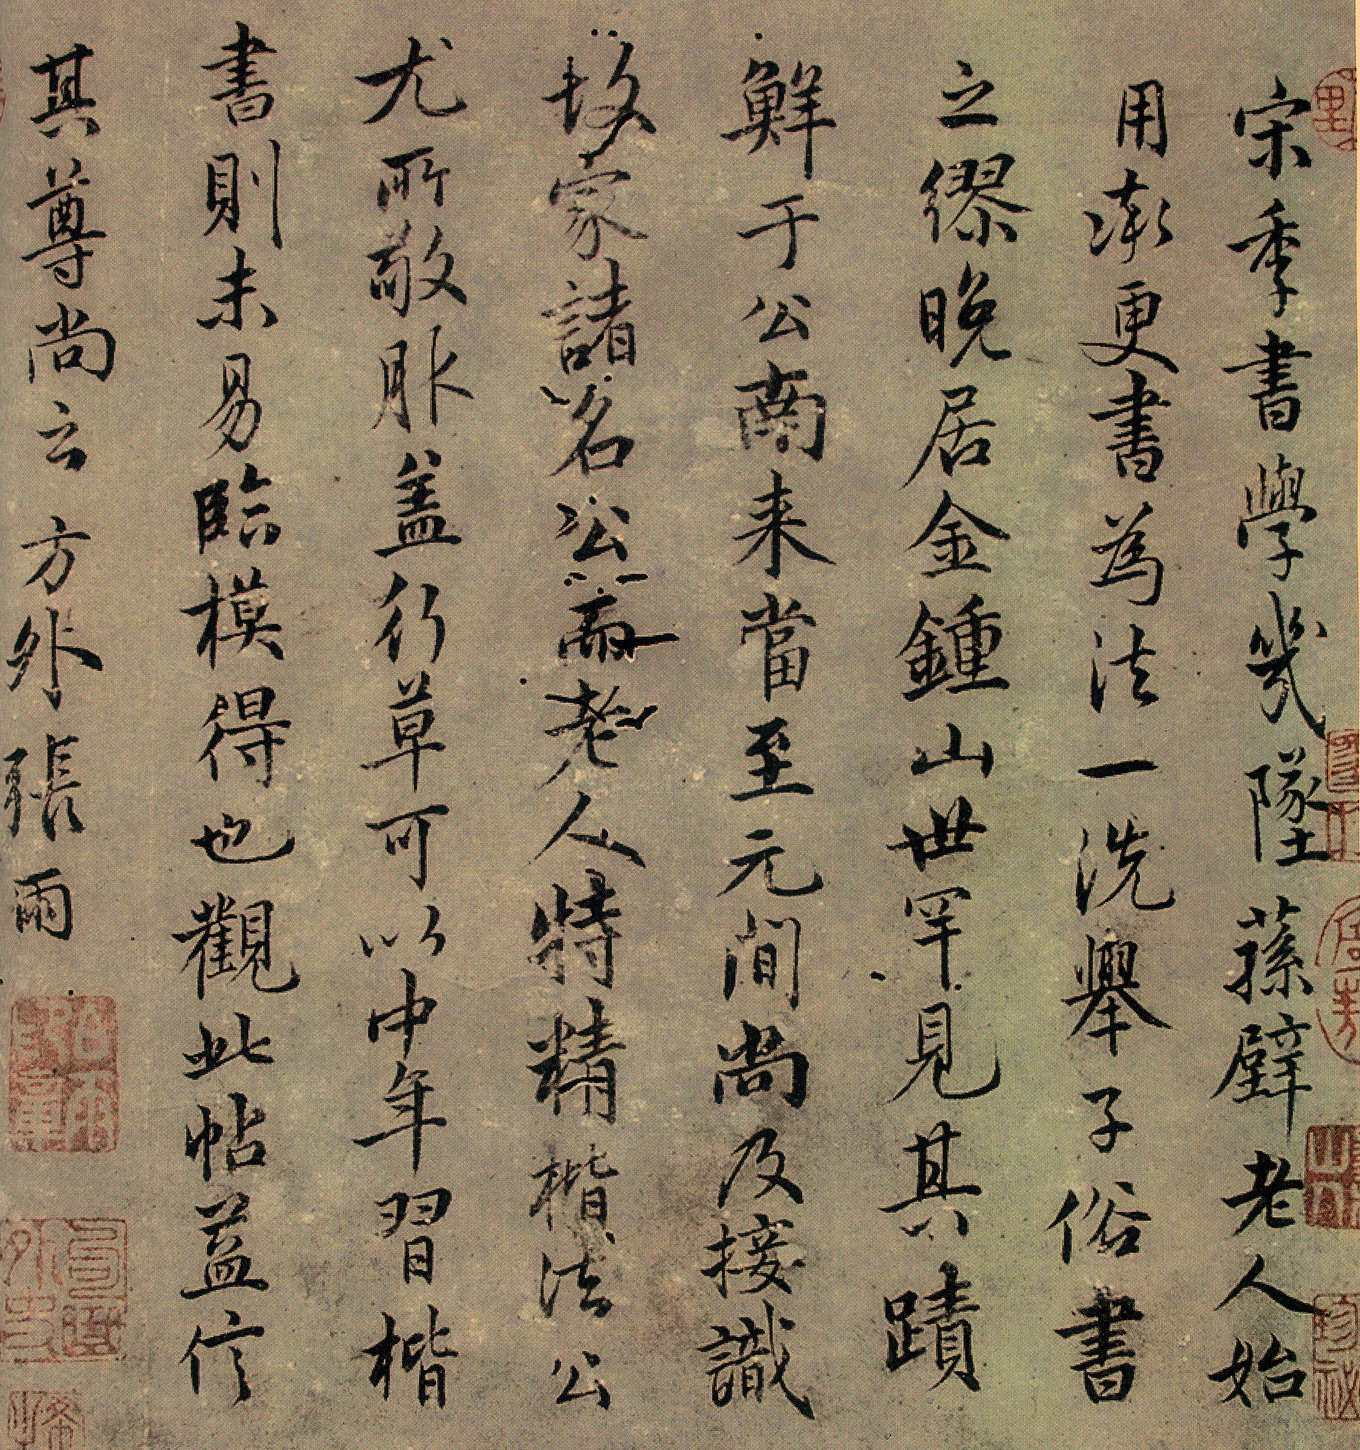 宋季書學幾墜蓀璧老人始
用漸更書為法一洗舉子俗書
之繆晚居金鍾山世罕見其蹟
鮮于公南来當至元間尚及接識
故家諸名公而老人特精楷法公
尤所敬服盖行草可以中年習楷
書則未易臨模得也觀此帖益信
其尊尚云方外張雨